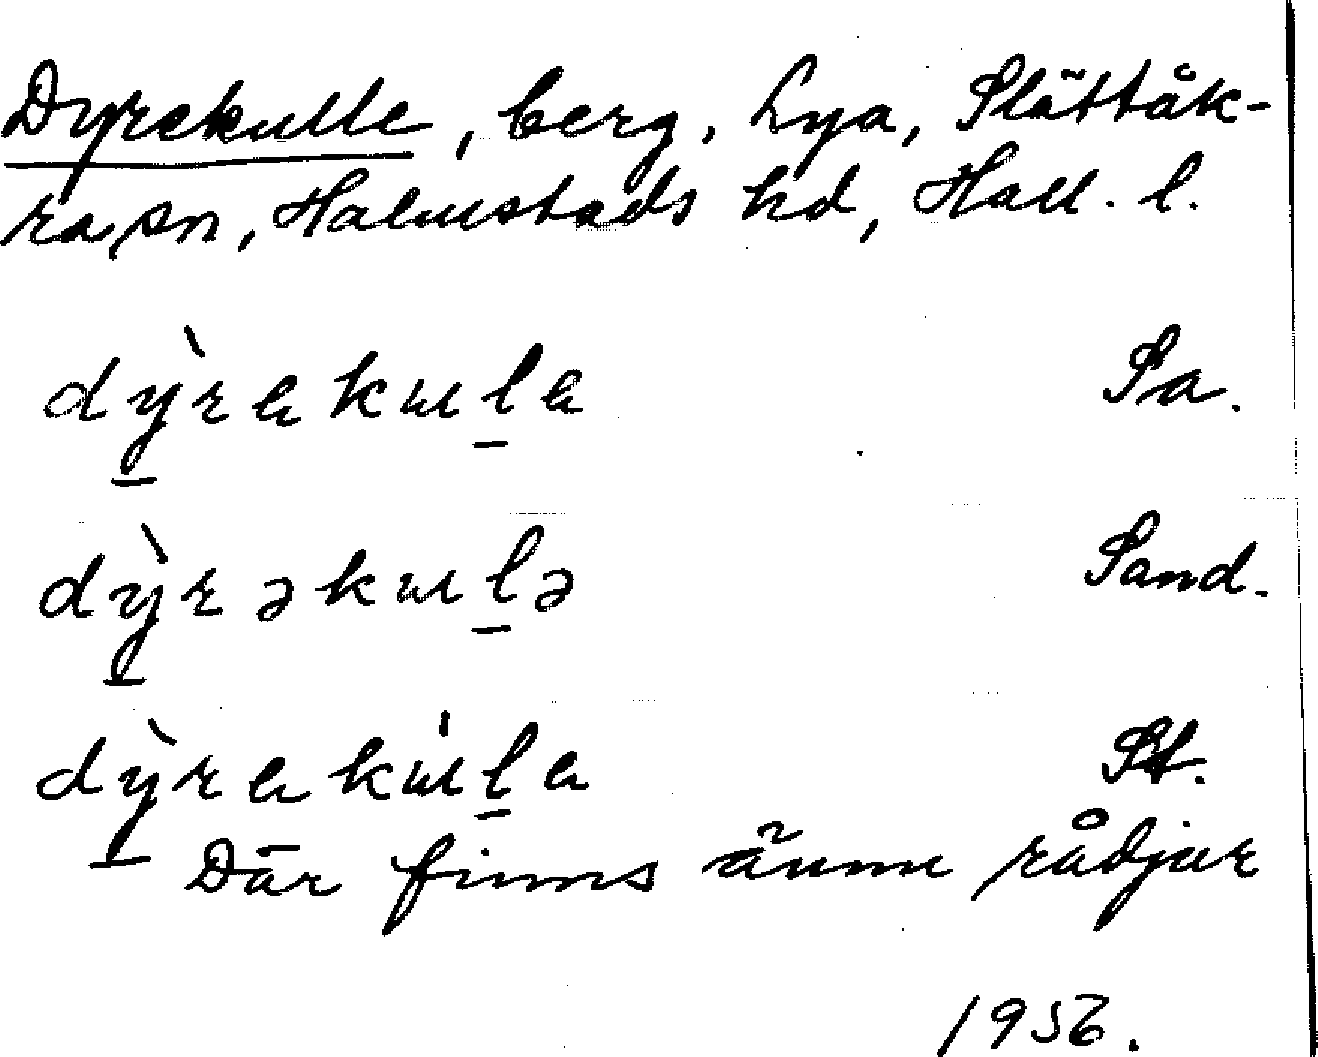 Dyrekulle, berg, Lya, Slättåk-
ra sn, Halmstads hd, Hall. l.
dỳ̱rekuḻe Sa.
dỳ̱rəkuḻə Sand.
dỳ̱reku̍ḻe St.
Där finns ännu rådjur
1956.